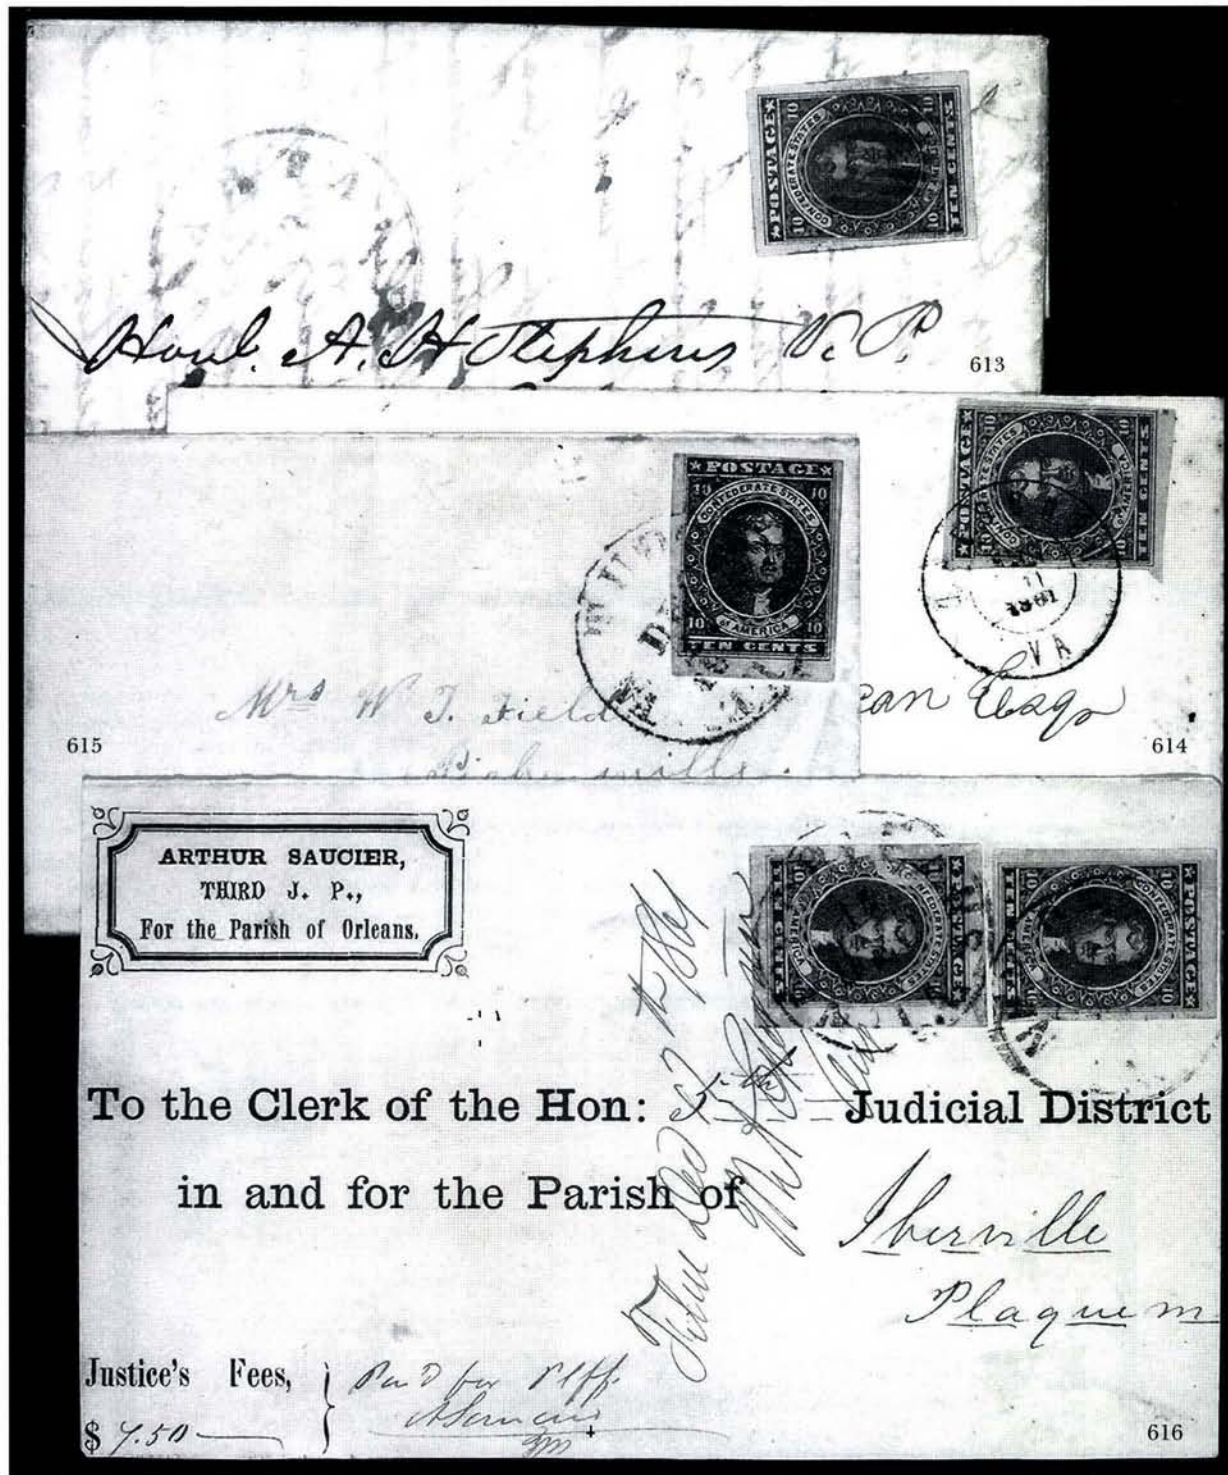 ★POSTAGE★
10 10
CONFEDERATE STATES
OF AMERICA
10 10
TEN CENTS
Honl. A. H. Stephens V. P.
613
★POSTAGE★
10 10
CONFEDERATE STATES
OF AMERICA
10 10
TEN CENTS
VA
Esqr
614
★POSTAGE★
10 10
CONFEDERATE STATES
OF AMERICA
10 10
TEN CENTS
Mrs W. T. Field
615
ARTHUR SAUCIER,
THIRD J. P.,
For the Parish of Orleans.
POSTAGE★
10 10
CONFEDERATE STATES
OF AMERICA
10
TEN CENTS
★POSTAGE★
10 10
CONFEDERATE STATES
OF AMERICA
10 10
TEN CENTS
To the Clerk of the Hon: 5th Judicial District
in and for the Parish of Iberville
Plaquem
Justice's Fees,
$ 7.50
Paid for Plff.
616